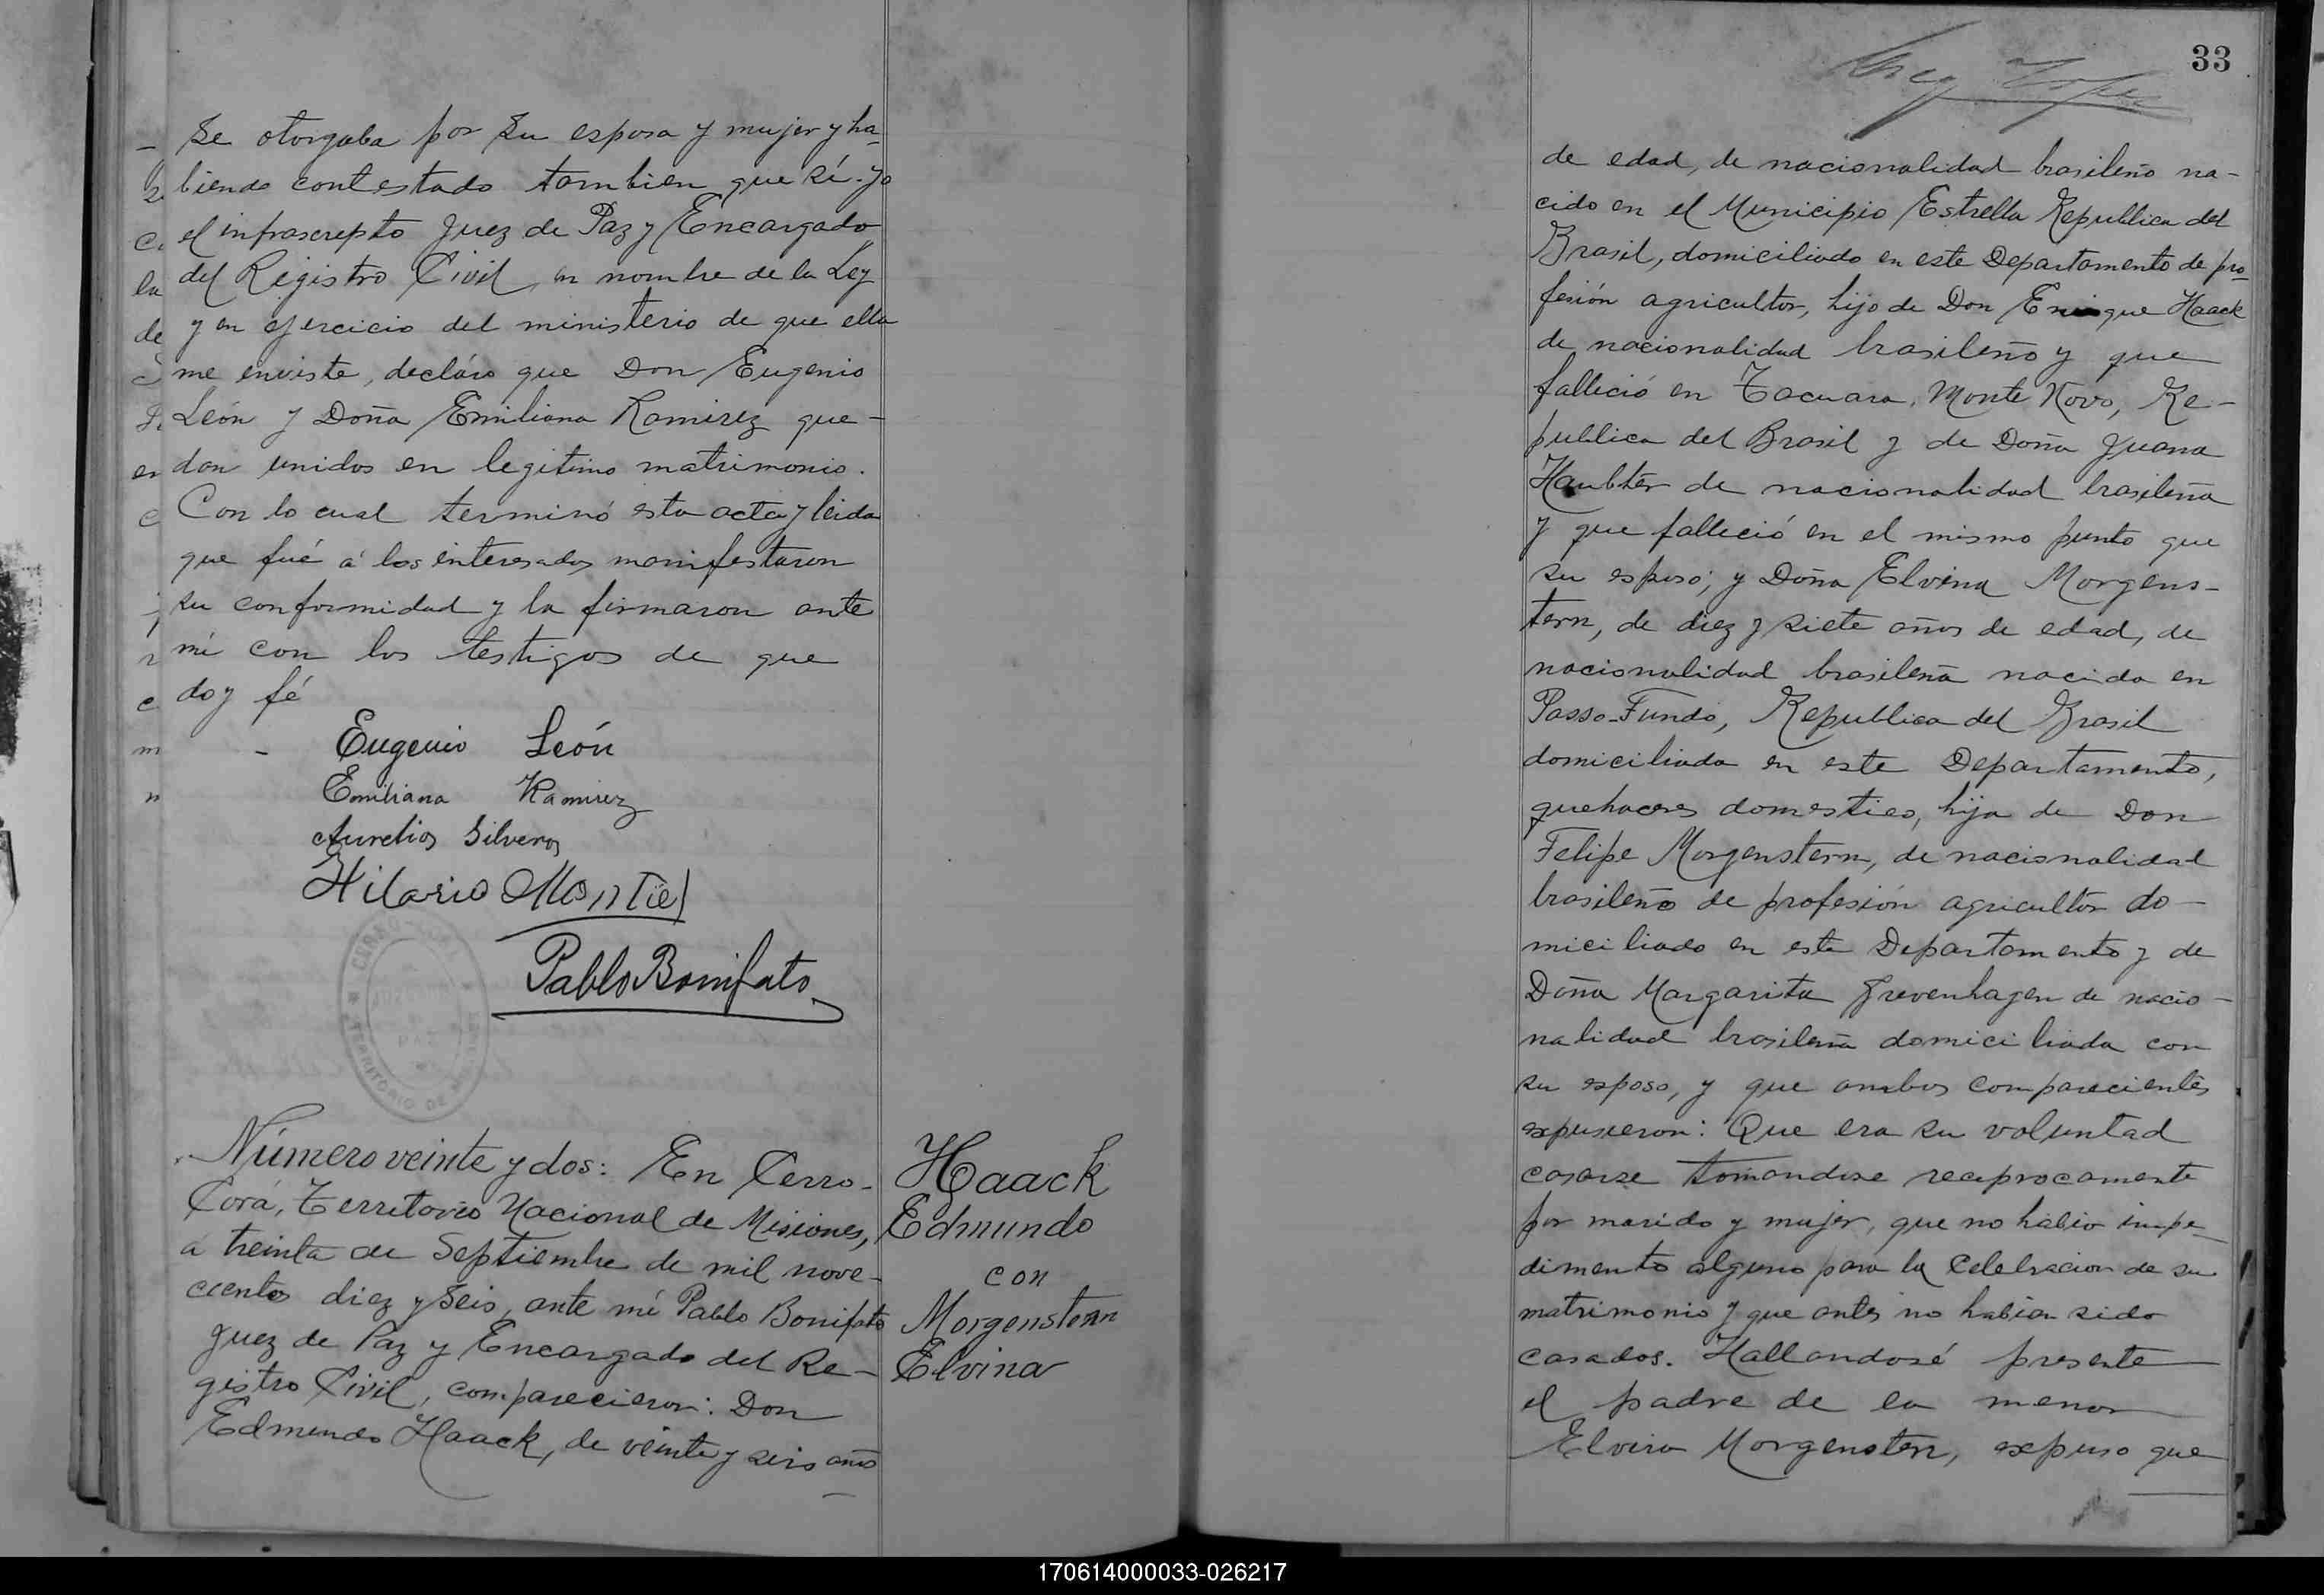 se otorgaba por su esposa y mujer y ha-
biendo contestado tambien que sí - yo
el infrascrepto Juez de Paz y Encargado
del Registro Civil, en nombre de la Ley
y en ejercicio del ministerio de que ella
me enviste, decláro que Don Eugenio
León y Doña Emiliana Ramirez que-
dan unidos en legitimo matrimonio.
Con lo cual terminó esta acta y leida
que fué á los interesados manifestaron
su conformidad y la firmaron ante
mi con los testigos de que
doy fé
Eugenio León
Emiliana Ramirez
Aurelios Silveros
Hilario Montiel
Pablo Bonifato
JUZGADO
PAZ
TERRITORIO DE
Número veinte y dos: En Cerro-
Corá, Territorio Nacional de Misiones,
a treinta de Septiembre de mil nove-
cientos diez y seis, ante mí Pablo Bonifato
Juez de Paz y Encargado del Re-
gistro Civil, comparecieron: Don
Edmundo Haack, de veinte y seis años
Haack
Edmundo
con
Morgenstern
Elvina
33
de edad, de nacionalidad brasileño na-
cido en el Municipio Estrella Republica del
Brasil, domiciliado en este Departamento de pro-
fesión agricultor, hijo de Don Enrique Haack
de nacionalidad brasileño y que
falleció en Tacuara, Monte Novo, Re-
publica del Brasil y de Doña Juana
Haubter de nacionalidad brasileña
y que falleció en el mismo punto que
su esposo; y Doña Elvina Morgens-
tern, de diez y siete años de edad, de
nacionalidad brasileña nacida en
Passo-Fundo, Republica del Brasil
domiciliada en este Departamento,
quehaceres domesticos, hija de Don
Felipe Morgenstern, de nacionalidad
brasileño de profesión agricultor do-
miciliado en este Departamento y de
Doña Margarita Grevenhagen de nacio-
nalidad brasileña domiciliada con
su esposo, y que ambos comparecientes
expusieron: Que era su voluntad
casarse tomandose reciprocamente
por marido y mujer, que no habia impe-
dimento alguno para la celebracion de su
matrimonio y que antes no habian sido
casados. Hallandosé presente
el padre de la menor
Elvira Morgenstern, expuso que
170614000033-026217